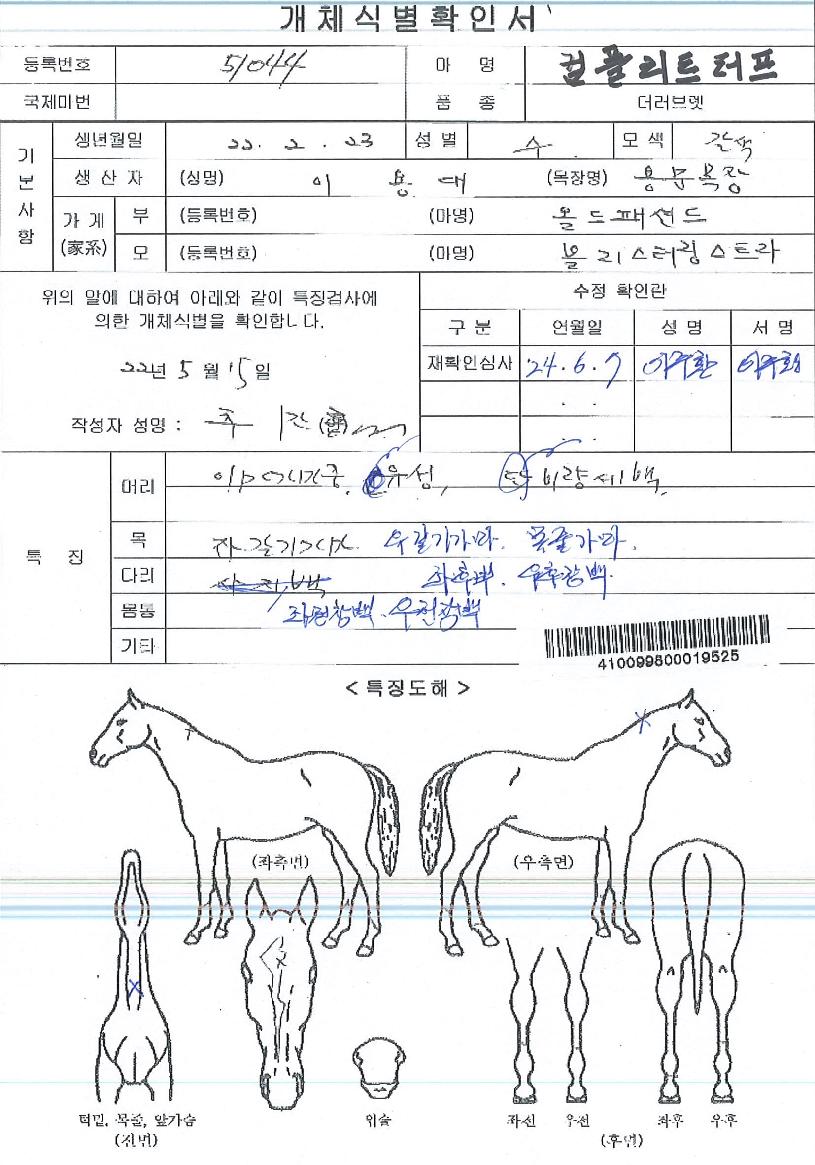 개체식별확인서
등록번호 51044 마 명 컴플리트터프
국제마번 품 종 더러브렛
기본사항
생년월일 22. 2. 23 성별 수 모색 갈색
생산자 (성명) 이 용 대 (목장명) 용문목장
가계 (家系) 부 (등록번호) (마명) 올드패션드
모 (등록번호) (마명) 볼리스터링스트라
위의 말에 대하여 아래와 같이 특징검사에
의한 개체식별을 확인합니다.
22년 5월 15일
작성자 성명 :
수정 확인란
구 분 언월일 성 명 서 명
재확인심사 24.6.7
특 징
머리 유성, 비량세백
목 좌갈기가마 우갈기가마. 목줄가마.
다리 사지백 우후장백.
몸통
기타
410099800019525
<특징도해>
(좌측면) (우측면)
턱밑, 목줄, 앞가슴
(전면)
위슬
좌전 우전 좌후 우후
(후면)